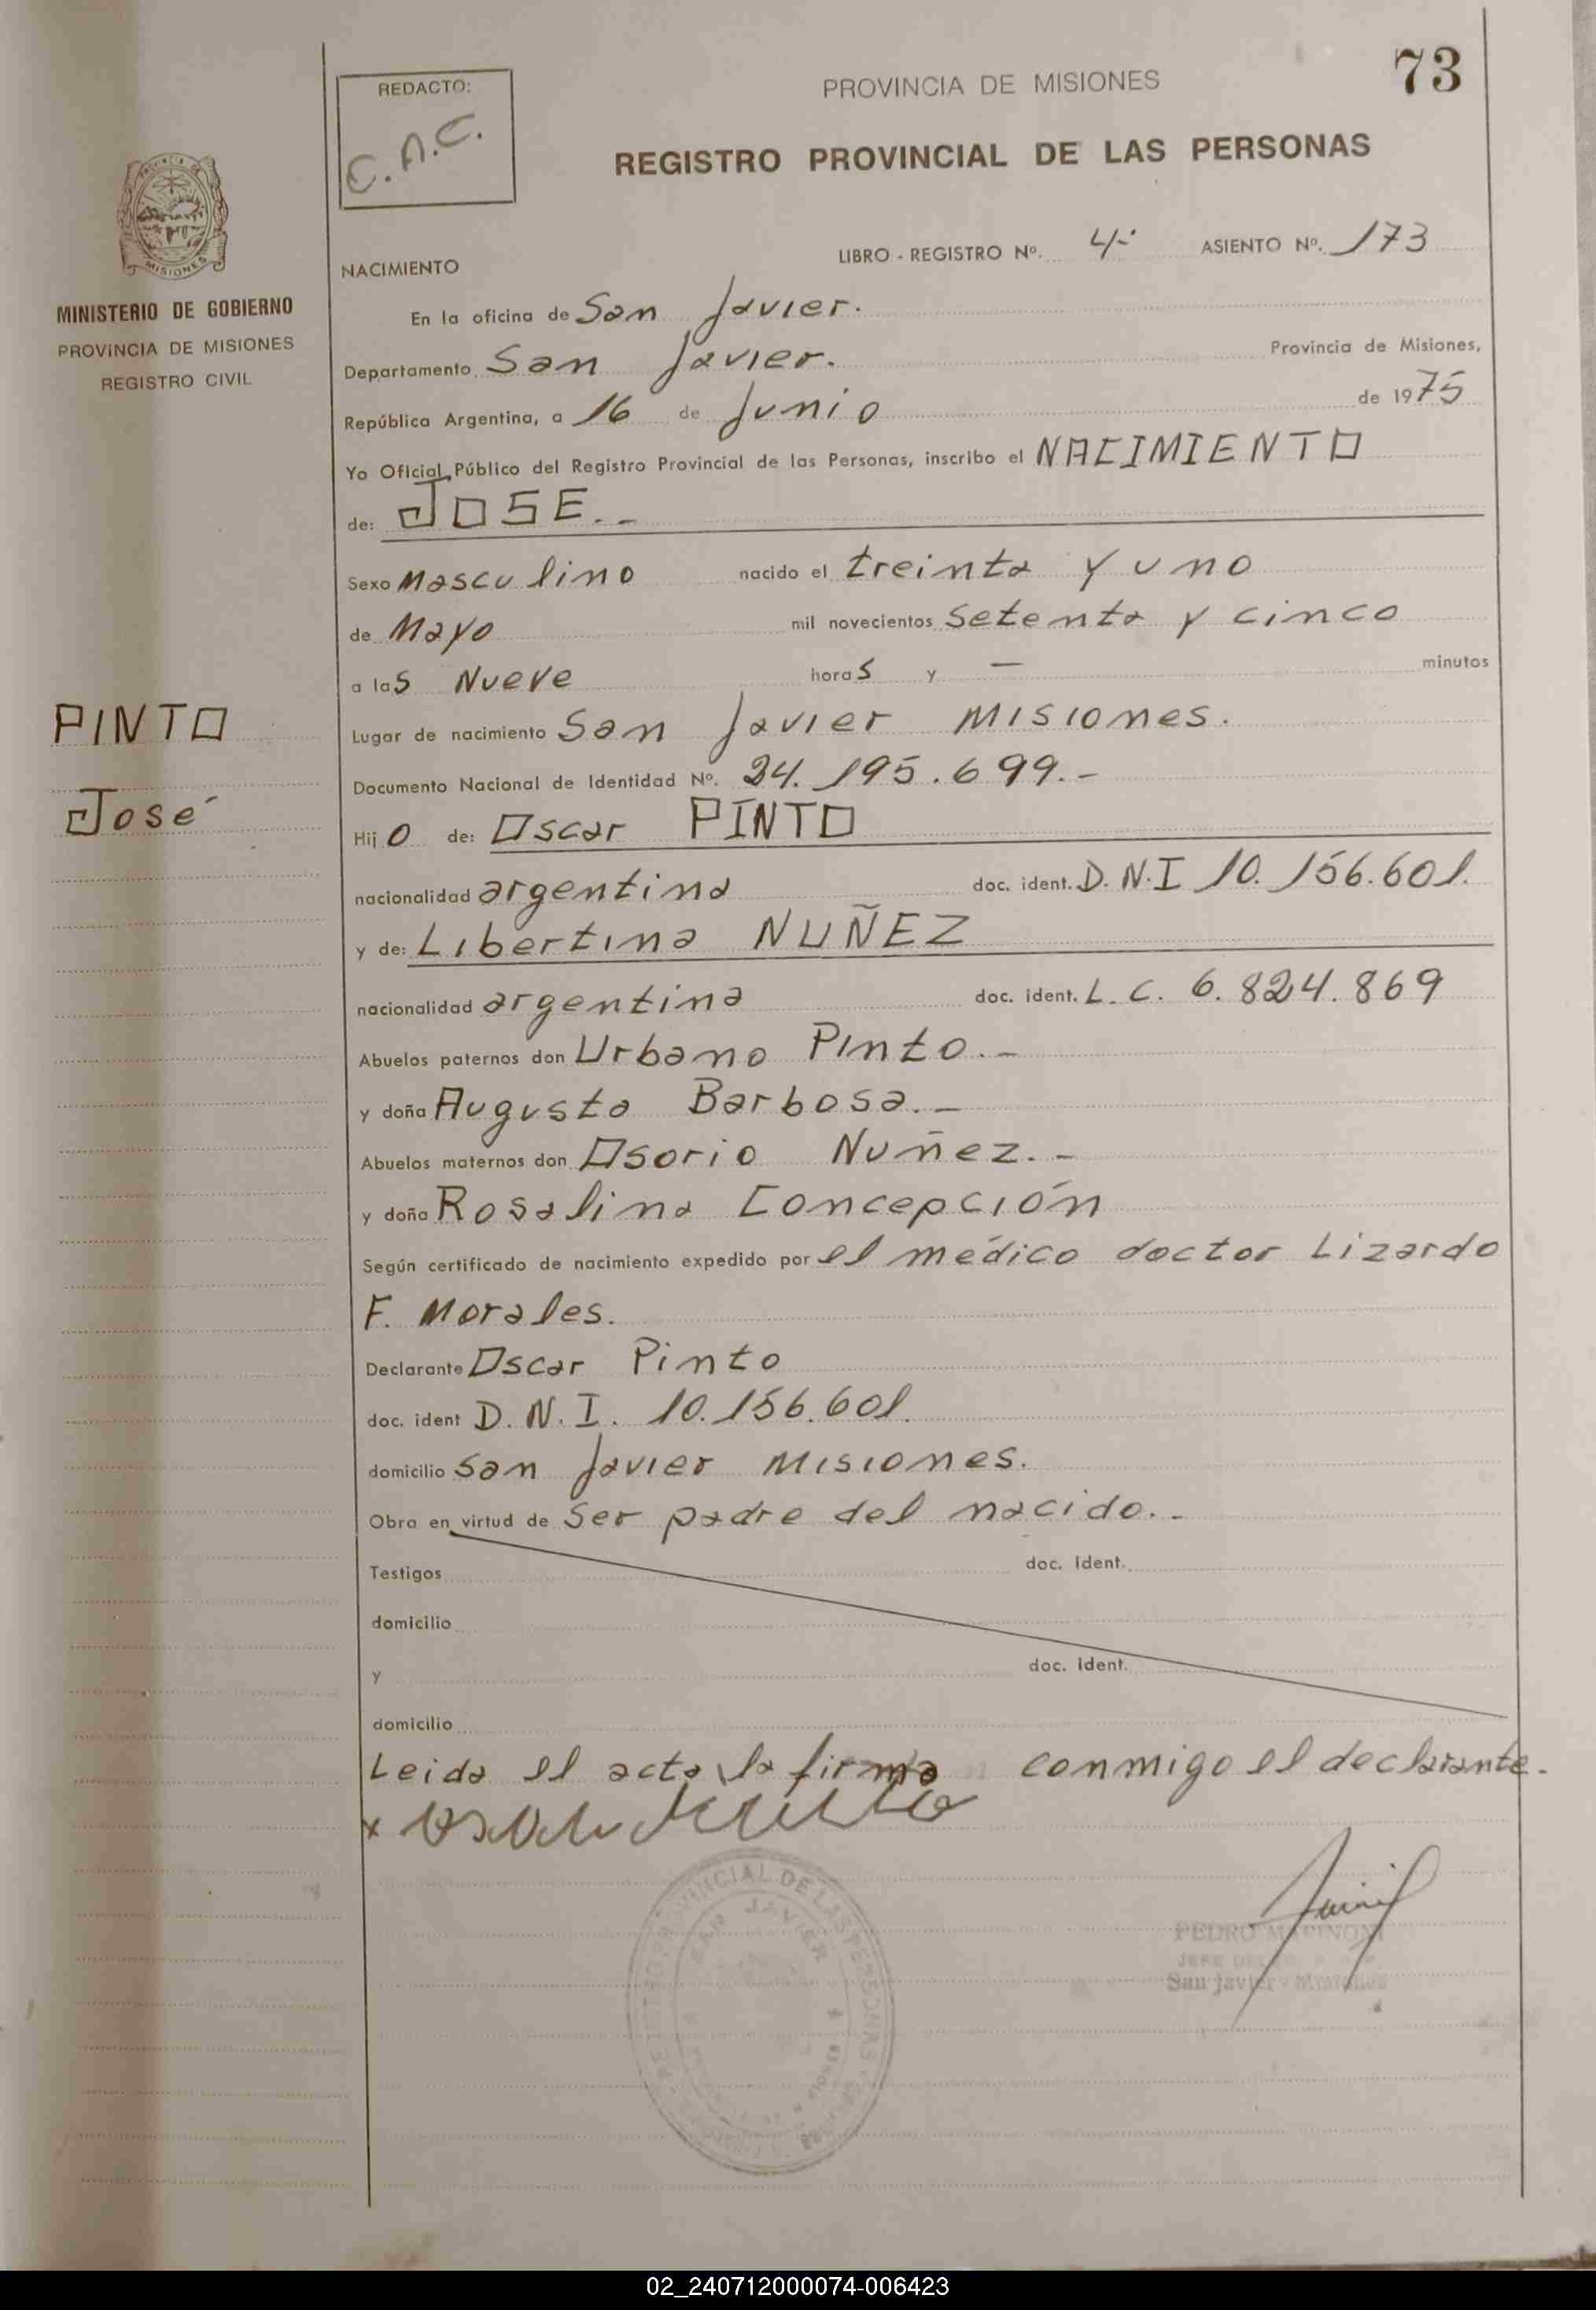 73
REDACTO:
C.A.C.
PROVINCIA DE MISIONES
REGISTRO PROVINCIAL DE LAS PERSONAS
MISIONES
MINISTERIO DE GOBIERNO
PROVINCIA DE MISIONES
REGISTRO CIVIL
LIBRO - REGISTRO Nº. 4-· ASIENTO Nº. 173
NACIMIENTO
En la oficina de San Javier.
Departamento San Javier. Provincia de Misiones,
República Argentina, a 16 de Junio de 1975
Yo Oficial Público del Registro Provincial de las Personas, inscribo el NACIMIENTO
de: JOSE.-
Sexo Masculino nacido el treinta y uno
de Mayo mil novecientos setenta y cinco
a las Nueve horas y — minutos
PINTO
José
Lugar de nacimiento San Javier Misiones.
Documento Nacional de Identidad Nº. 24.195.699.-
Hijo de: Oscar PINTO
nacionalidad argentina doc. ident. D.N.I 10.156.601.
y de: Libertina NUÑEZ
nacionalidad argentina doc. ident. L.C. 6.824.869
Abuelos paternos don Urbano Pinto.-
y doña Augusta Barbosa.-
Abuelos maternos don Osorio Nuñez.-
y doña Rosalina Concepción
Según certificado de nacimiento expedido por el médico doctor Lizardo
F. Morales.
Declarante Oscar Pinto
doc. ident D.N.I. 10.156.601.
domicilio San Javier Misiones.
Obra en virtud de ser padre del nacido.-
Testigos doc. ident.
domicilio
y doc. ident.
domicilio
Leida el acta la firma conmigo el declarante.
x
PROVINCIAL DE LAS PERSONAS
SAN JAVIER
PEDRO
San Javier - Misiones
02_240712000074-006423